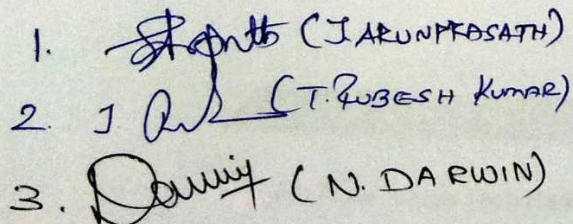 1. (J ARUNPRASATH)
2. J (T. RUBESH KUMAR)
3. (N. DARWIN)